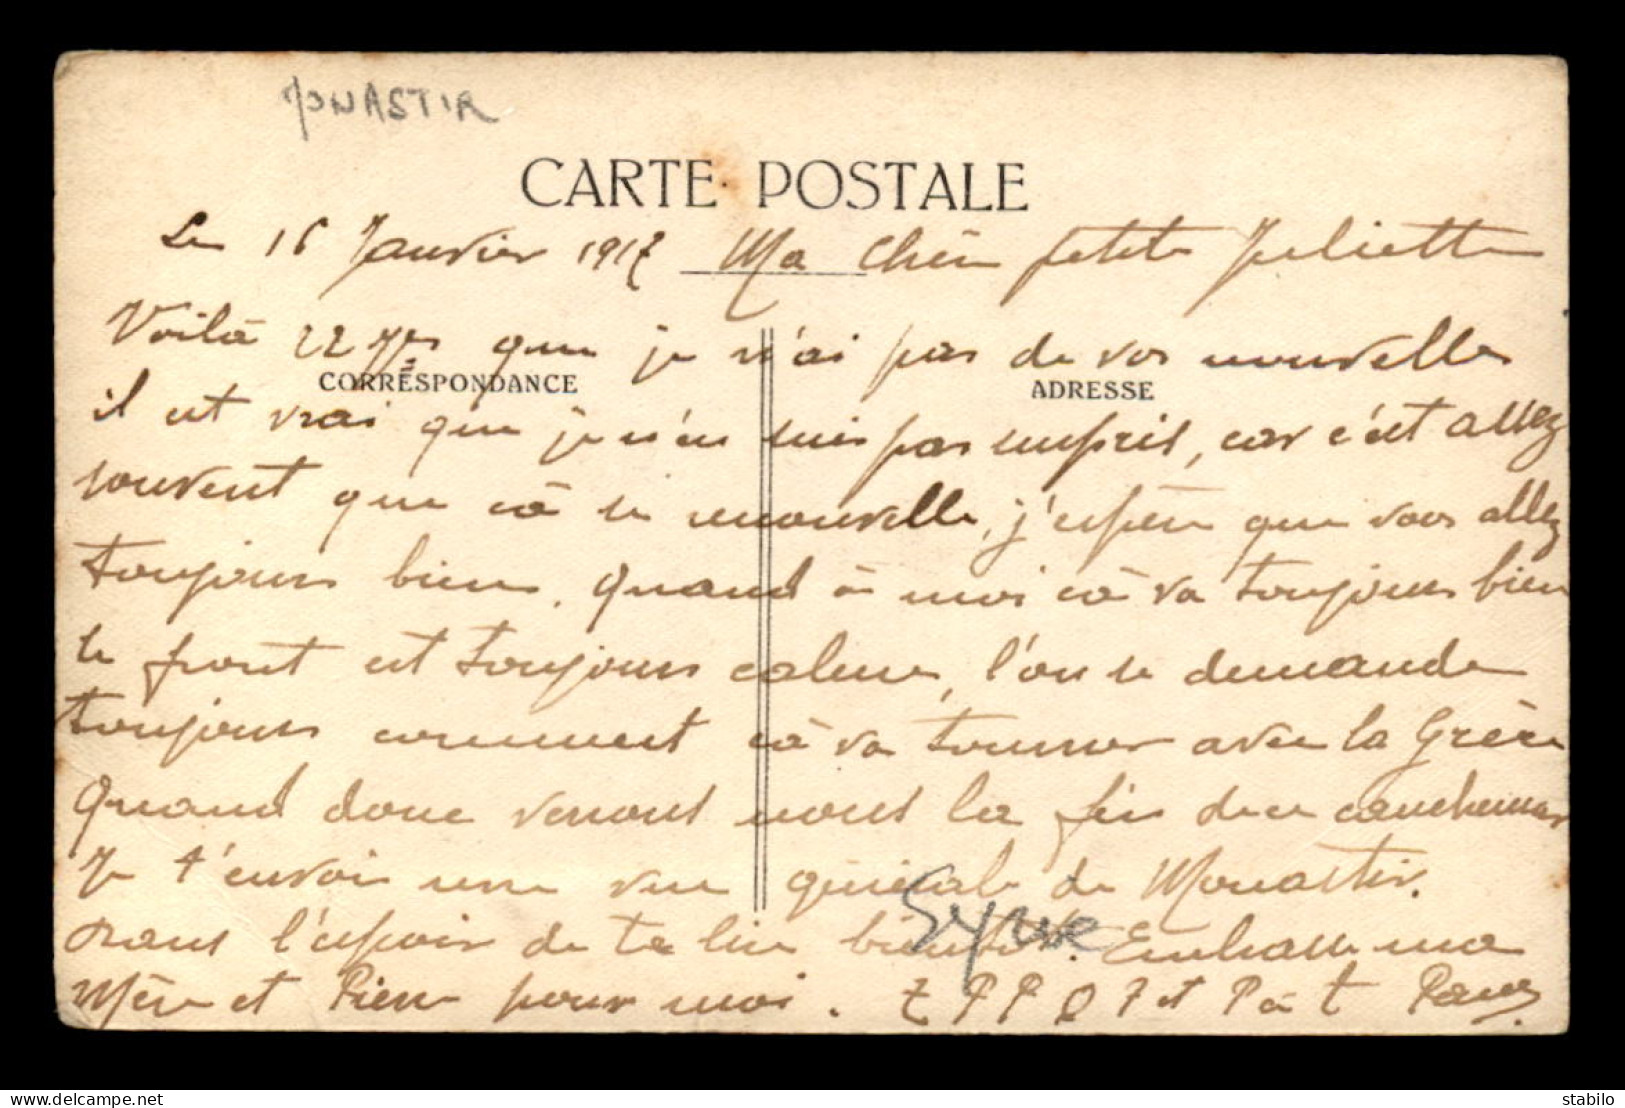 MONASTIR
CARTE POSTALE
Le 16 Janvier 1917 Ma Chère petite Juliette
Voilà 22 jrs que je n'ai pas de vos nouvelles
CORRESPONDANCE
ADRESSE
il est vrai que je n'en suis pas surpris, car c'est assez
souvent que cà se renouvelle, j'espère que vous allez
toujours bien. Quand à moi cà va toujours bien
le front est toujours calme, l'on se demande
toujours comment cà va tourner avec la Grèce
Quand donc verrons nous la fin de ce cauchemar
Je t'envoie une vue générale de Monastir.
dans l'espoir de te lire bientôt. Embrasse ma
Mère et Pierre pour moi. P P et P à t
stabilo